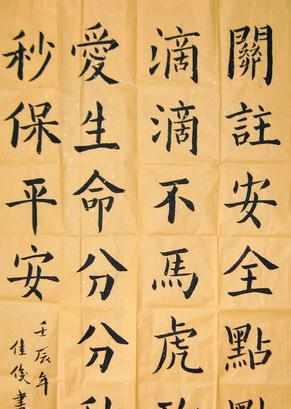 關註安全點點
滴滴不馬虎珍
愛生命分分秒
秒保平安
壬辰年
佳俊書